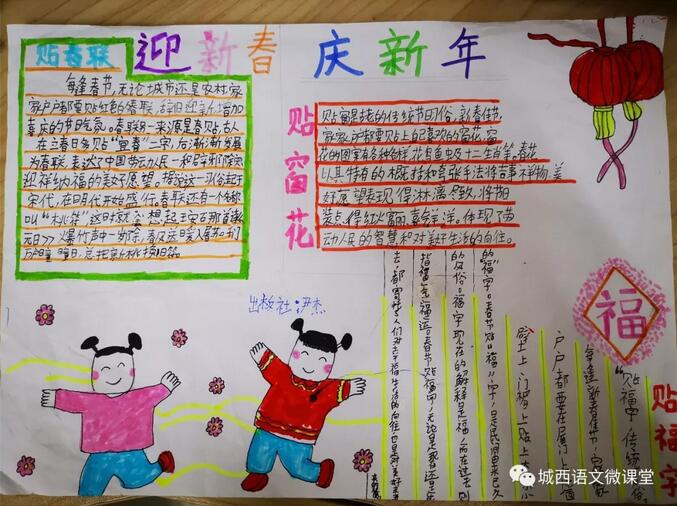 迎新春 庆新年
贴春联
每逢春节,无论城市还是农村,家
家户户都要贴红色的春联,辞旧迎新,增加
喜庆的节日气氛。春联的一来源是春贴,古人
在立春日多贴“宜春”二字,后渐渐发展
为春联,表达了中国劳动人民一和辟邪除灾
迎祥纳福的美好愿望。
宋代,在明代开始盛行,春联还有一个名称
叫“桃符”这时就会想起王安石那首
元日 爆竹声中一岁除,春风送暖入屠苏。千门
万户曈曈日,总把新桃换旧符。
贴窗花
贴窗
家家户户都要贴上自己喜欢的窗花,窗
花的图案各种各样,花鸟鱼虫及十二生肖等。春花
以其特有的概括和夸张手法将吉事祥物,美
好愿望表现得淋漓尽致,将节日
装点得红火富丽,喜气洋洋。体现了劳
动人民的智慧和对美好生活的向往。
出版社:伊杰
福
贴福字
“贴福字”传统
每逢新春佳节,家
户户都要在屋门上
壁上、门楣上贴上大大小小
的“福”字。春节贴“福”字,是民间由来已久
的风俗。福字现在的解释是福,而在过去则
指福气福运。春节贴福字,无论是现在还是
过去,都寄托了人们对幸福生活的向往,也是对美好未来
城西语文微课堂